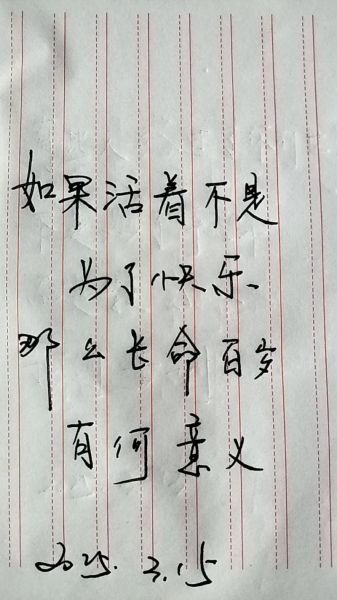 如果活着不是
为了快乐、
那么长命百岁
有何意义
2025.3.15